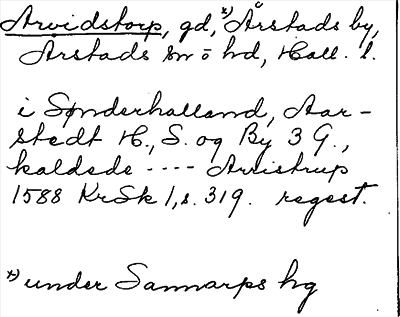 Arvidstorp, gd, *) Årstads by,
Årstads sn o hd, Hall. l.
i Sønderhalland, Aar-
stedt H., S. og By 3 G.,
kaldede ---- Arvistrup
1588 KrSk 1, s. 319. regest.
*) under Sannarps hg